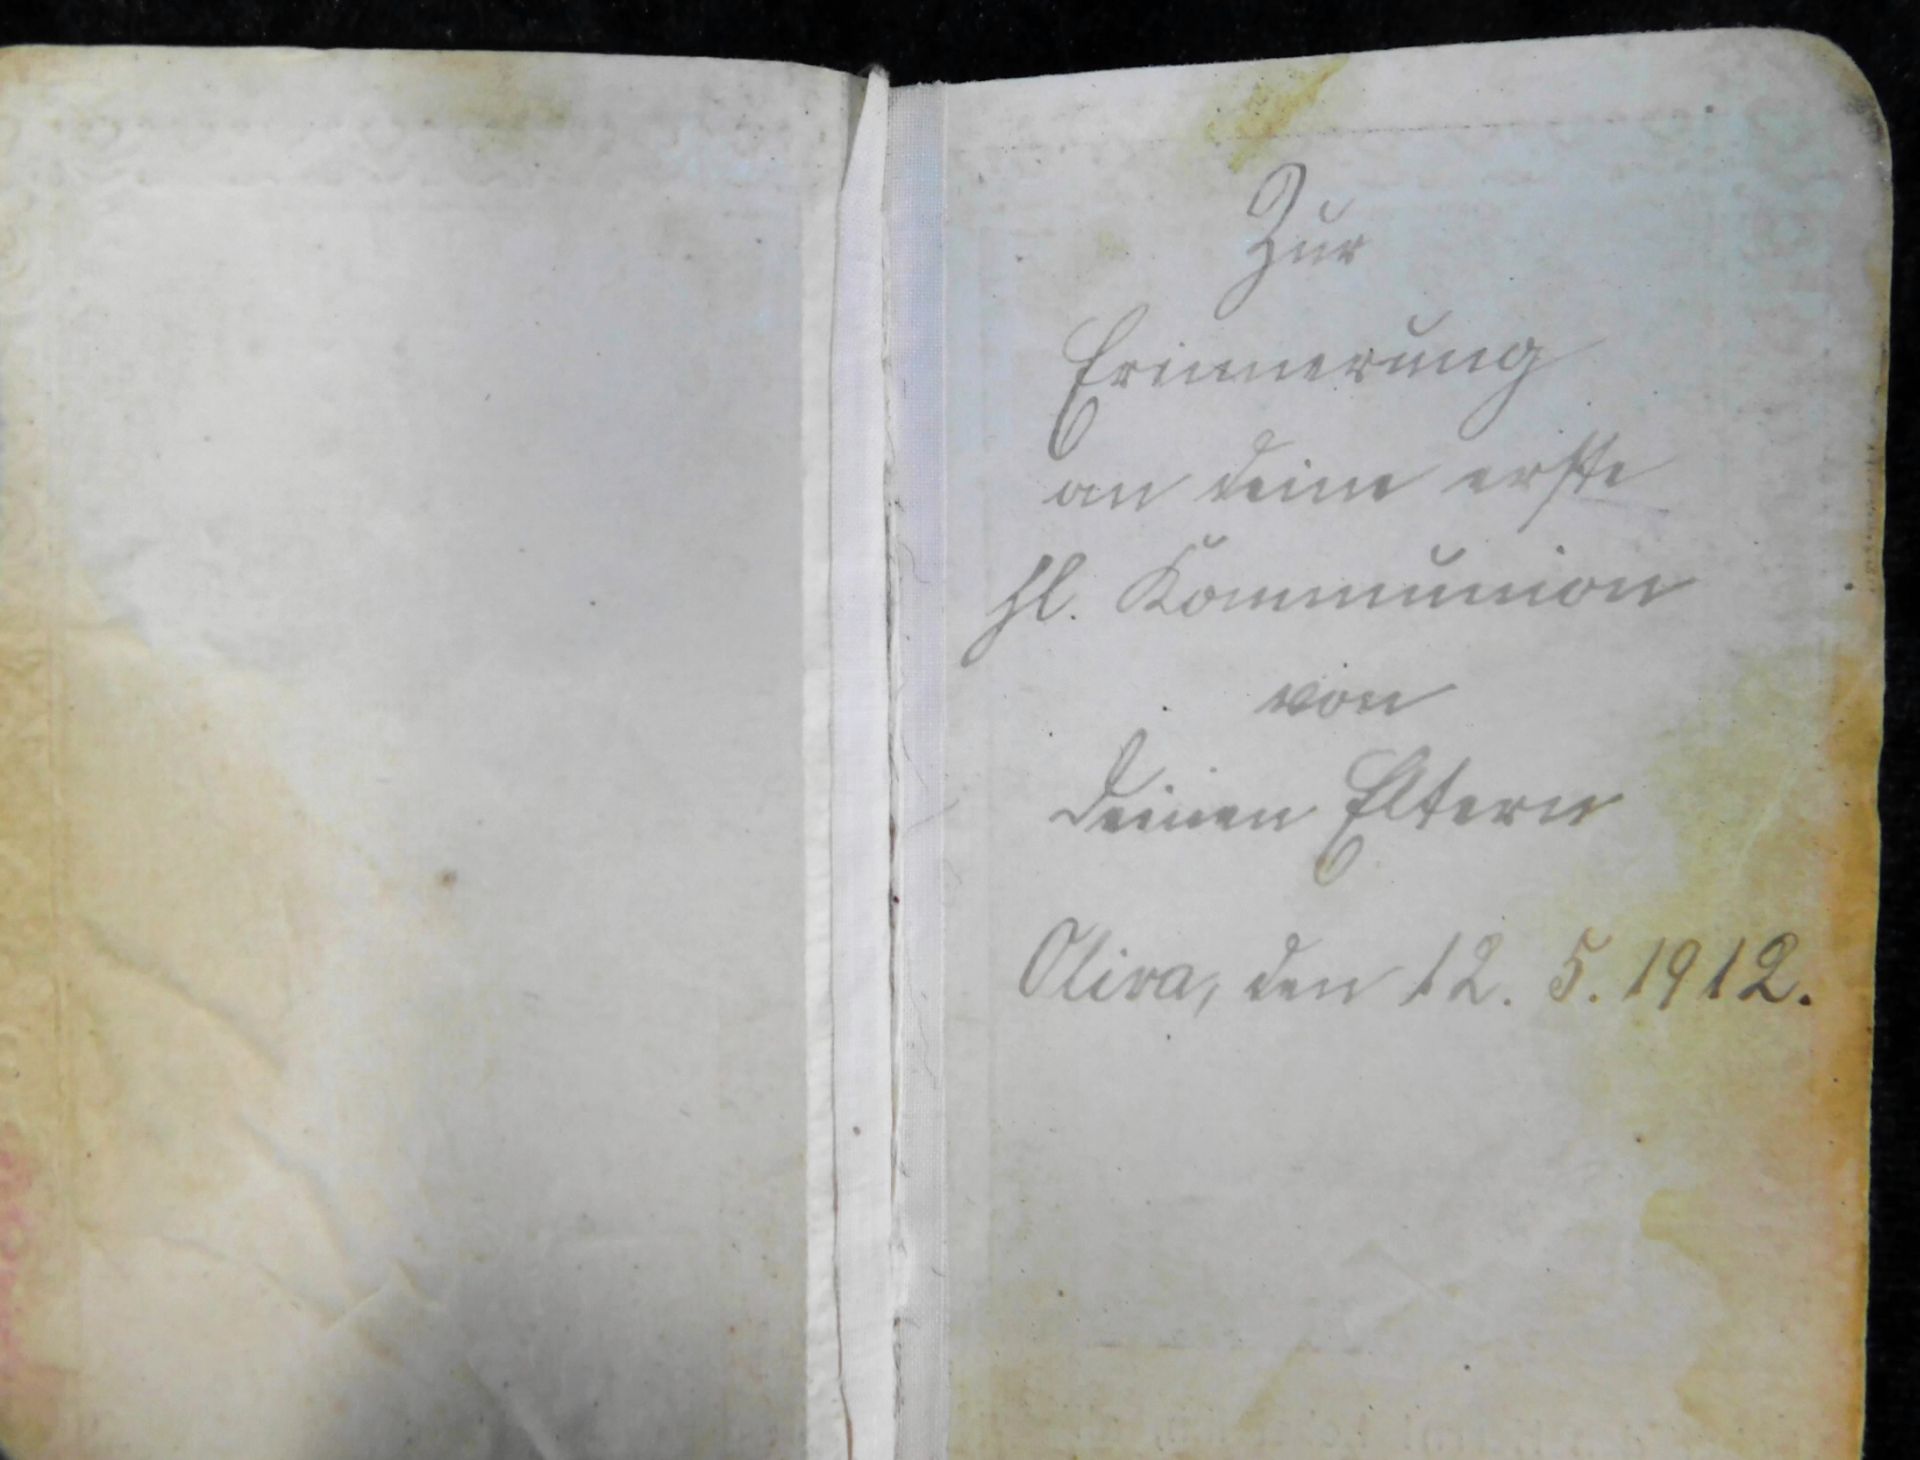 Zur
Erinnerung
an deine erste
hl. Kommunion
von
deinen Eltern
Oliva, den 12. 5. 1912.